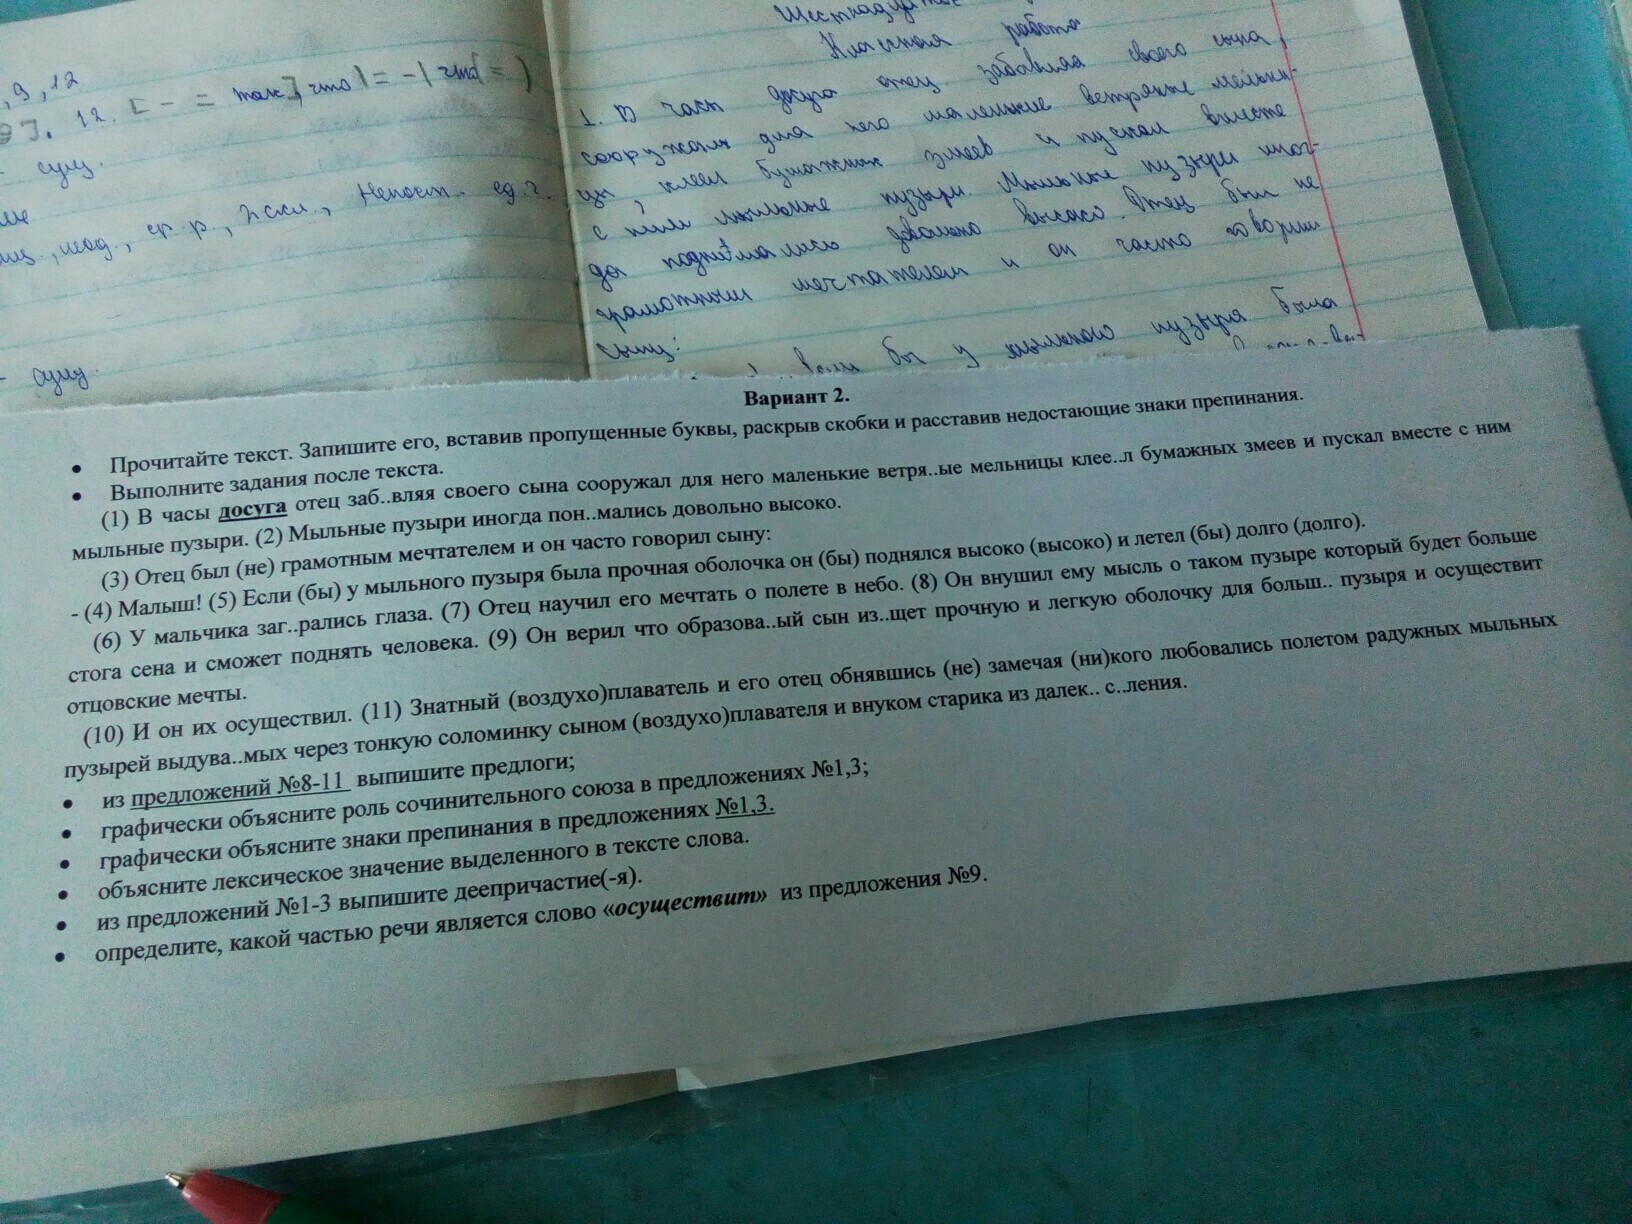 , 9, 12
12. [ - = так], что ( = - ( что ( = )
- сущ.
неод., ср. р., 2 скл., Непост. ед. ч.
- сущ.
Классная работа
1. В часы досуга отец, забавляя своего сына,
сооружал для него маленькие ветряные мельни-
цы, клеил бумажных змеев и пускал вместе
с ним мыльные пузыри. Мыльные пузыри иног-
да поднимались довольно высоко. Отец был не
грамотным мечтателем и он часто говорил
сыну:
бы у мыльного пузыря была
Вариант 2.
• Прочитайте текст. Запишите его, вставив пропущенные буквы, раскрыв скобки и расставив недостающие знаки препинания.
• Выполните задания после текста.
(1) В часы досуга отец заб..вляя своего сына сооружал для него маленькие ветря..ые мельницы клее..л бумажных змеев и пускал вместе с ним
мыльные пузыри. (2) Мыльные пузыри иногда пон..мались довольно высоко.
(3) Отец был (не) грамотным мечтателем и он часто говорил сыну:
- (4) Малыш! (5) Если (бы) у мыльного пузыря была прочная оболочка он (бы) поднялся высоко (высоко) и летел (бы) долго (долго).
(6) У мальчика заг..рались глаза. (7) Отец научил его мечтать о полете в небо. (8) Он внушил ему мысль о таком пузыре который будет больше
стога сена и сможет поднять человека. (9) Он верил что образова..ый сын из..щет прочную и легкую оболочку для больш.. пузыря и осуществит
отцовские мечты.
(10) И он их осуществил. (11) Знатный (воздухо)плаватель и его отец обнявшись (не) замечая (ни)кого любовались полетом радужных мыльных
пузырей выдува..мых через тонкую соломинку сыном (воздухо)плавателя и внуком старика из далек.. с..ления.
• из предложений №8-11 выпишите предлоги;
• графически объясните роль сочинительного союза в предложениях №1,3;
• графически объясните знаки препинания в предложениях №1,3.
• объясните лексическое значение выделенного в тексте слова.
• из предложений №1-3 выпишите деепричастие(-я).
• определите, какой частью речи является слово «осуществит» из предложения №9.